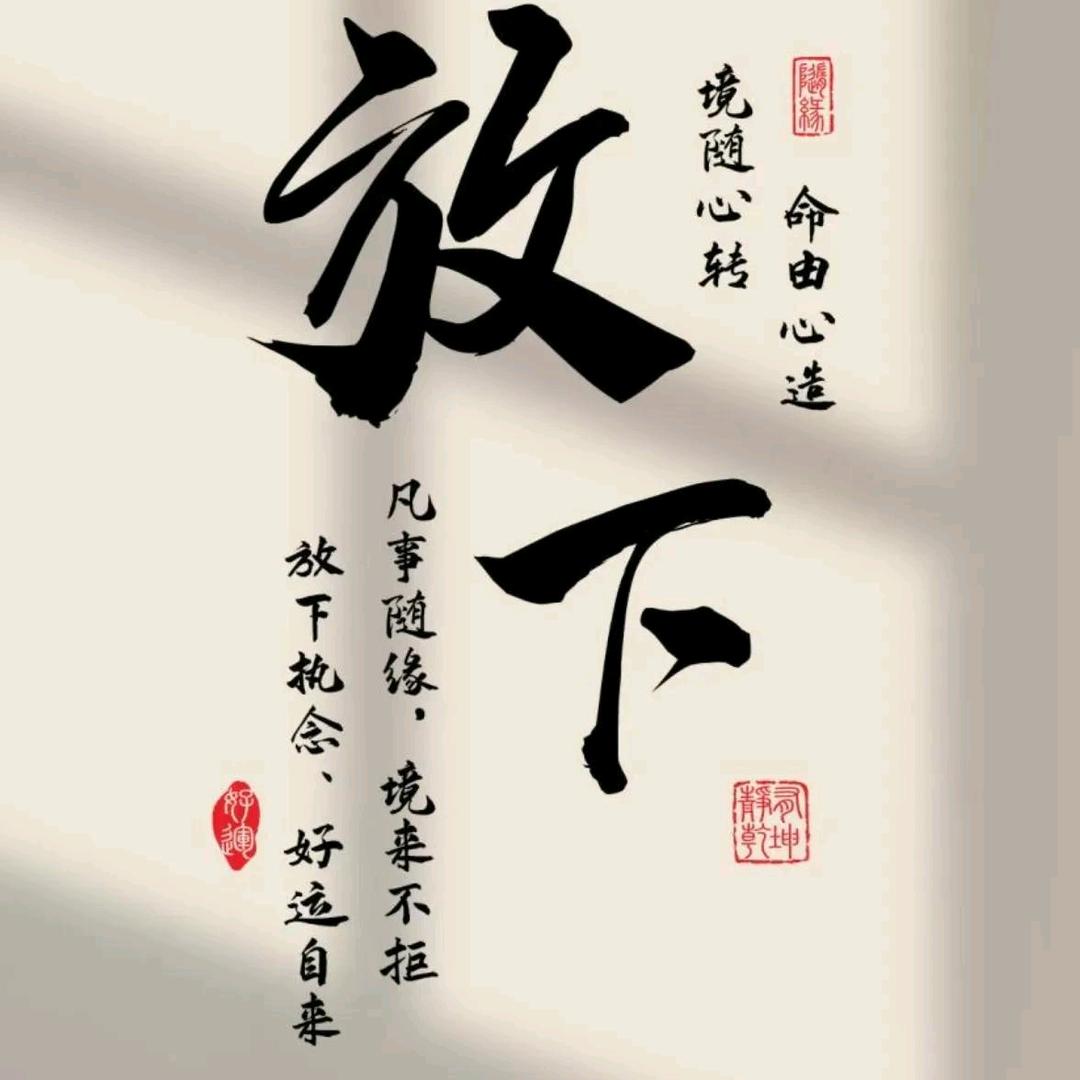 随缘
命由心造
境随心转
放下
靜有
乾坤
凡事随缘，境来不拒
放下执念、好运自来
好運